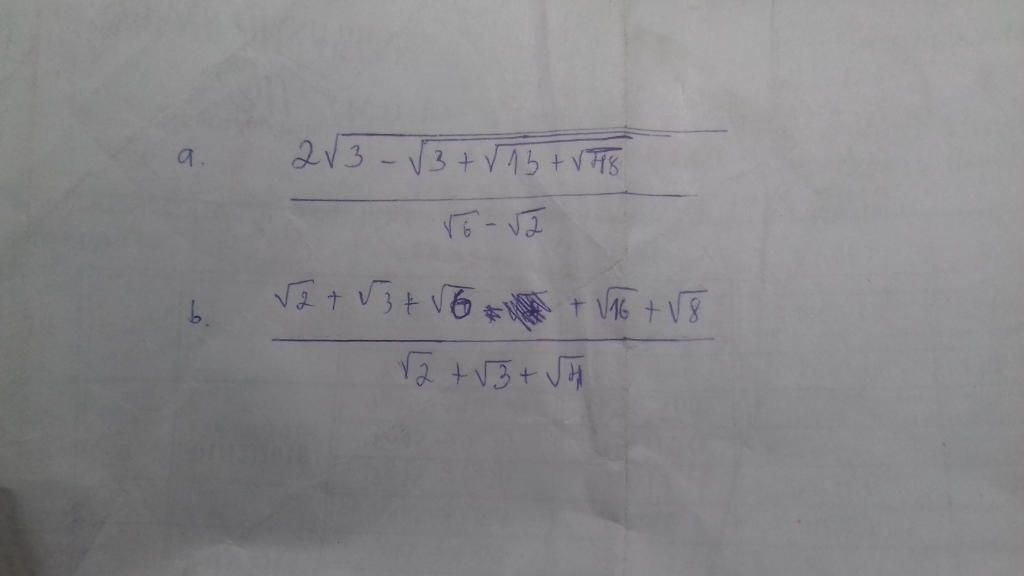 a. 2√3 - √3 + √13 + √48
√6 - √2
b. √2 + √3 + √6 + √16 + √8
√2 + √3 + √4